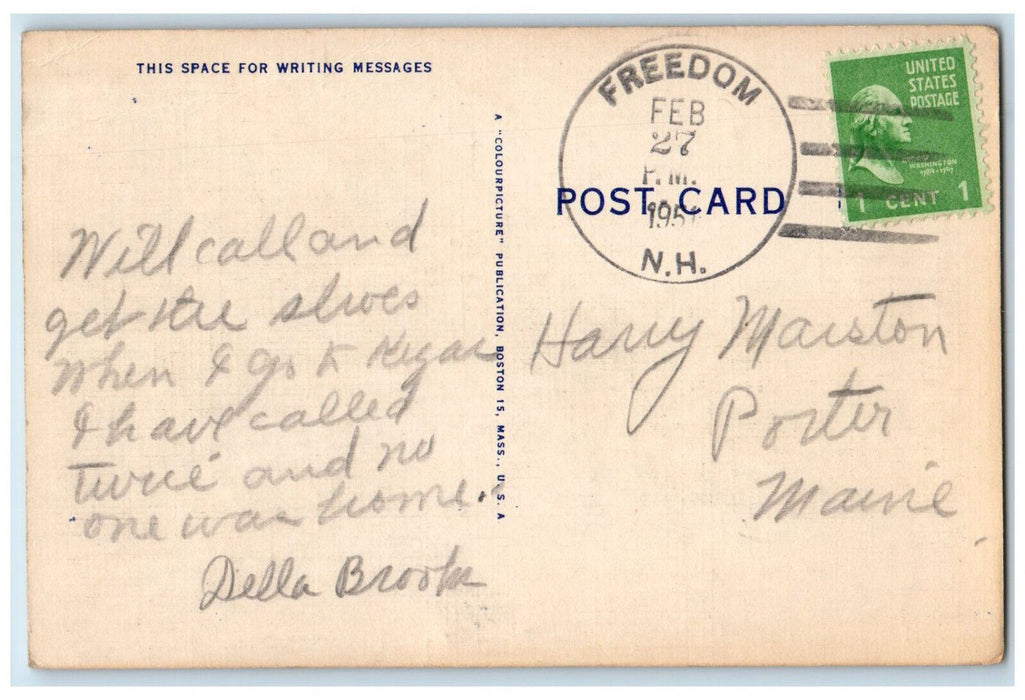 THIS SPACE FOR WRITING MESSAGES
Will call and
get the shoes
when I go to Kezar
I have called
twice and no
one was home.
Della Brooks
A "COLOURPICTURE" PUBLICATION, BOSTON 15, MASS., U. S. A
FREEDOM
FEB
27
P.M.
N.H.
POST CARD
UNITED
STATES
POSTAGE
WASHINGTON
1 CENT 1
Harry Marston
Porter
Maine